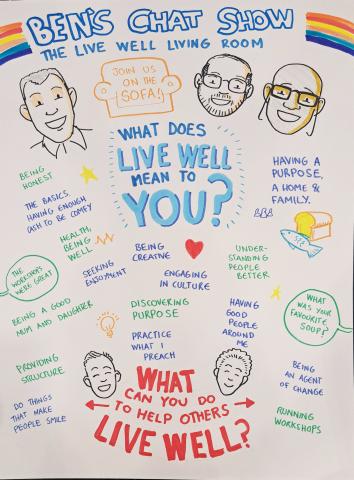 BEN'S CHAT SHOW
THE LIVE WELL LIVING ROOM
JOIN US
ON THE
SOFA!
WHAT DOES
LIVE WELL
MEAN TO
YOU?
BEING
HONEST
THE BASICS,
HAVING ENOUGH
CASH TO BE COMFY
HEALTH,
BEING
WELL
THE
WORKSHOPS
WERE GREAT
SEEKING
ENJOYMENT
BEING A GOOD
MUM AND DAUGHTER
PROVIDING
STRUCTURE
DO THINGS
THAT MAKE
PEOPLE SMILE
BEING
CREATIVE
ENGAGING
IN CULTURE
DISCOVERING
PURPOSE
PRACTICE
WHAT I
PREACH
HAVING A
PURPOSE,
A HOME &
FAMILY.
UNDER-
STANDING
PEOPLE
BETTER
HAVING
GOOD
PEOPLE
AROUND
ME
WHAT
WAS YOUR
FAVOURITE
SOUP?
BEING
AN AGENT
OF CHANGE
RUNNING
WORKSHOPS
WHAT
CAN YOU DO
TO HELP OTHERS
LIVE WELL?